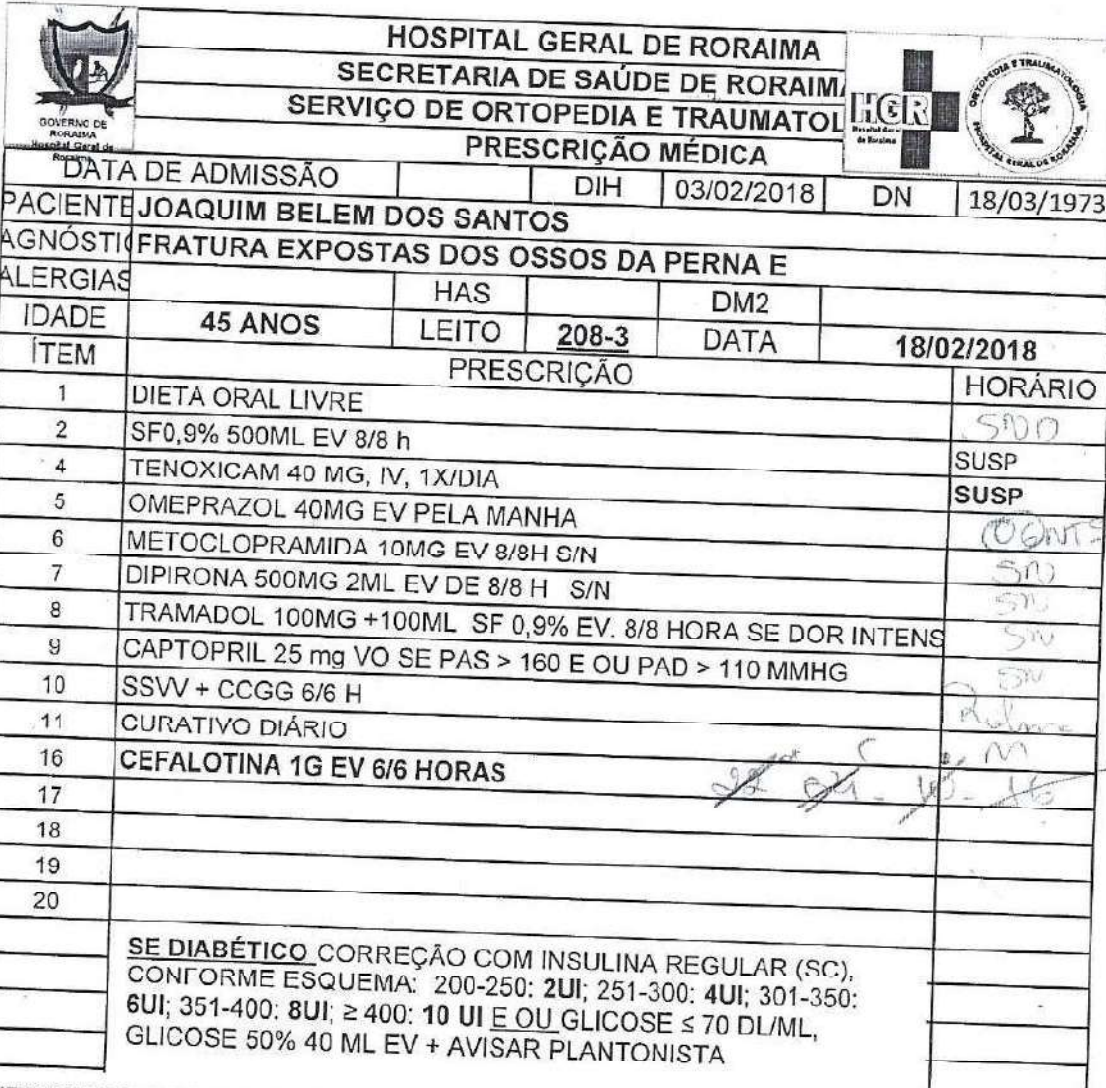 HOSPITAL GERAL DE RORAIMA
SECRETARIA DE SAÚDE DE RORAIMA
SERVIÇO DE ORTOPEDIA E TRAUMATOL
PRESCRIÇÃO MÉDICA
GOVERNO DE
RORAIMA
Hospital Geral de
Roraima
HGR
Hospital Geral
de Roraima
ORTOPEDIA E TRAUMATOLOGIA
HOSPITAL GERAL DE RORAIMA
DATA DE ADMISSÃO DIH 03/02/2018 DN 18/03/1973
PACIENTE JOAQUIM BELEM DOS SANTOS
AGNÓSTI FRATURA EXPOSTAS DOS OSSOS DA PERNA E
ALERGIAS HAS DM2
IDADE 45 ANOS LEITO 208-3 DATA 18/02/2018
ÍTEM PRESCRIÇÃO HORÁRIO
1 DIETA ORAL LIVRE SND
2 SF0,9% 500ML EV 8/8 h SUSP
4 TENOXICAM 40 MG, IV, 1X/DIA SUSP
5 OMEPRAZOL 40MG EV PELA MANHA
6 METOCLOPRAMIDA 10MG EV 8/8H S/N SN
7 DIPIRONA 500MG 2ML EV DE 8/8 H S/N SN
8 TRAMADOL 100MG +100ML SF 0,9% EV. 8/8 HORA SE DOR INTENS SN
9 CAPTOPRIL 25 mg VO SE PAS > 160 E OU PAD > 110 MMHG SN
10 SSVV + CCGG 6/6 H
11 CURATIVO DIÁRIO M
16 CEFALOTINA 1G EV 6/6 HORAS 22 04 - 10 - 16
17
18
19
20
SE DIABÉTICO CORREÇÃO COM INSULINA REGULAR (SC),
CONFORME ESQUEMA: 200-250: 2UI; 251-300: 4UI; 301-350:
6UI; 351-400: 8UI; ≥ 400: 10 UI E OU GLICOSE ≤ 70 DL/ML,
GLICOSE 50% 40 ML EV + AVISAR PLANTONISTA